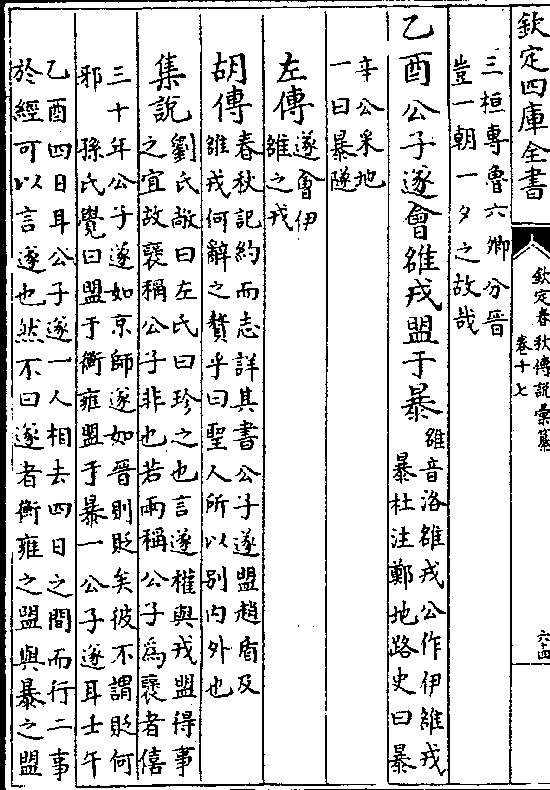 欽定四庫全書
欽定春秋傳說彙纂
卷十七
六四
三桓專魯六卿分晉
豈一朝一夕之故哉
乙酉公子遂會雒戎盟于暴
雒音洛雒戎公作伊雒戎
暴杜注鄭地路史曰暴
辛公采地
一曰暴隧
左傳
遂會伊
雒之戎
胡傳
春秋記約而志詳其書公子遂盟趙盾及
雒戎何辭之贅乎曰聖人所以别内外也
集說
劉氏敞曰左氏曰珍之也言遂權與戎盟得事
之宜故襃稱公子非也若兩稱公子為襃者僖
三十年公子遂如京師遂如晉則貶矣彼不謂貶何
邪 孫氏覺曰盟于衡雍盟于暴一公子遂耳壬午
乙酉四日耳公子遂一人相去四日之間而行二事
於經可以言遂也然不曰遂者衡雍之盟與暴之盟